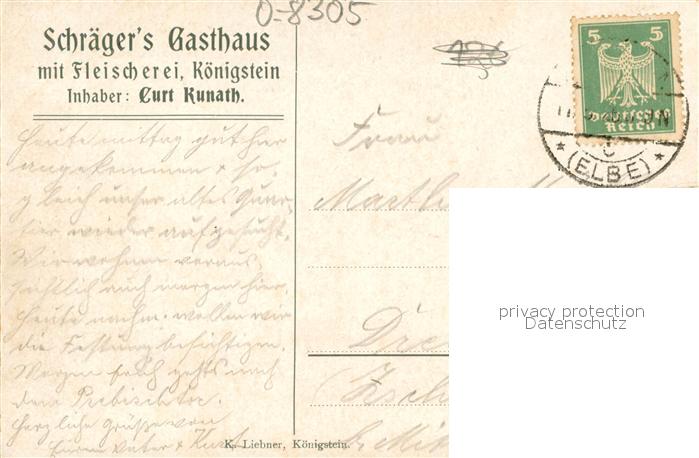 O-8305
Schräger's Gasthaus
mit Fleischerei, Königstein
Inhaber: Curt Kunath.
Heute mittag gut hier
angekommen + so-
gleich unser altes Quar-
tier wieder aufgesucht.
Wir wohnen voraus
sichtlich auch morgen hier.
Heute nachm. wollen wir
die Festung besichtigen.
Morgen früh gehts nach
dem Prebischtor.
Herzliche Grüße von
Eurem Vater + Kurt
5 5
Deutsches
Reich
(ELBE)
Frau
Martha
Dre
K. Liebner, Königstein.
privacy protection
Datenschutz